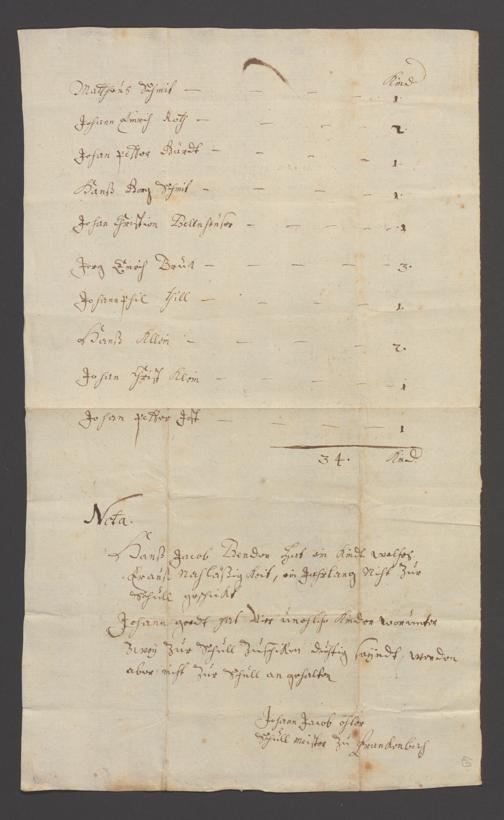 Kind
Mattheus Schmit — — — — 1.
Johann Emrich Roth — — — — 2.
Johan petter Bärdt — — — — 1.
Hanß Görg Schmit — — — — 1.
Johan Christion Bellnhäußer — — — — 1
Jerg Emrich Braun — — — — 3.
Johann phil Hill — — — — 1.
Hanß Klein — — — — 2.
Johan Christ Klein — — — — 1
Johan petter Jost — — — — 1
34. Kind.
Nota.
Hanß Jacob Bender hat ein Kindt welches
Nachläßigkeit, ein Jahrlang nicht zur
Schull geschickt
Johann hat vier Kinder worunter
zwey zur Schull zuschicken düchtig seyndt, werden
aber nicht zur Schull an gehalten
Johann Jacob öhler
Schull meister zu Franckenbach